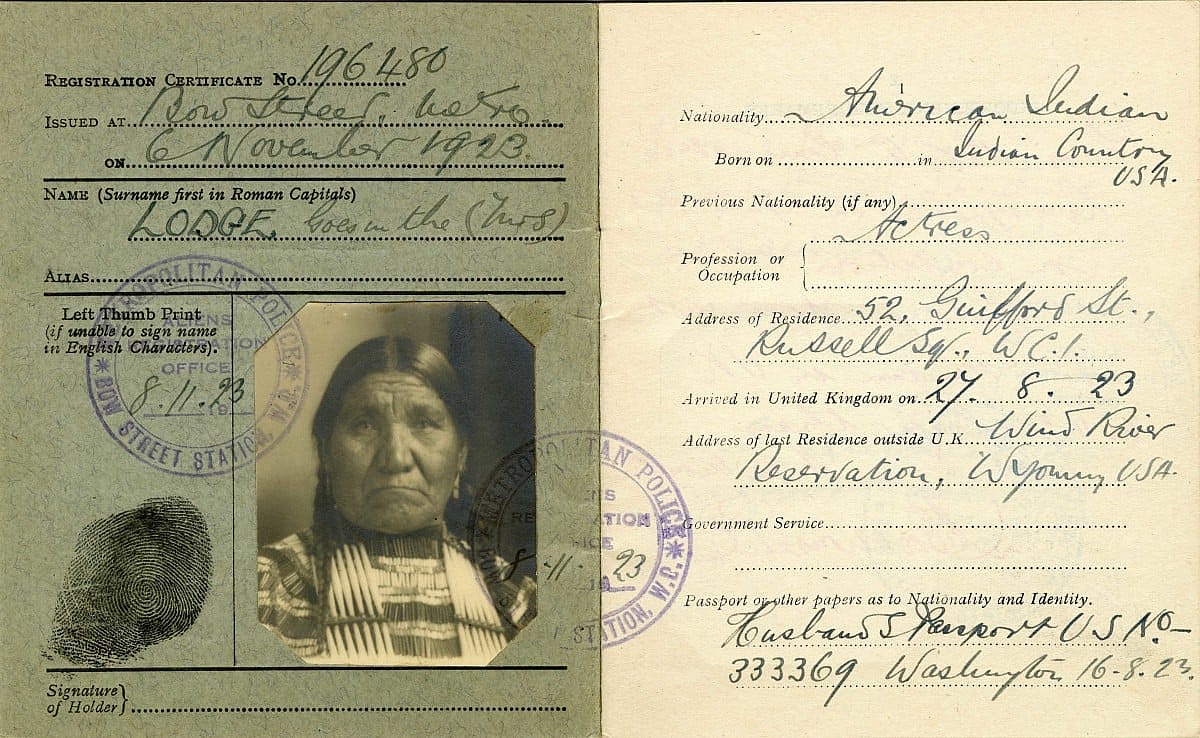 REGISTRATION CERTIFICATE No. 196480
ISSUED AT Bow Street, Metro.
ON 6 November 1923.
NAME (Surname first in Roman Capitals)
LODGE, Goes in the (Mrs)
ALIAS
Left Thumb Print
(if unable to sign name
in English Characters).
METROPOLITAN POLICE
ALIENS
REGISTRATION
OFFICE
8.11.23
19
BOW STREET STATION, W.C.
METROPOLITAN POLICE
8 - 11 - 23
STATION, W.C.
Signature
of Holder
Nationality American Indian
Born on in Indian Country
USA.
Previous Nationality (if any)
Actress
Profession or
Occupation
Address of Residence 52, Guilford St.,
Russell Sq., W.C.1.
Arrived in United Kingdom on 27. 8. 23
Address of last Residence outside U.K. Wind River
Reservation, Wyoming USA
Government Service
Passport or other papers as to Nationality and Identity.
Husband's Passport US No-
333369 Washington 16-8.23.